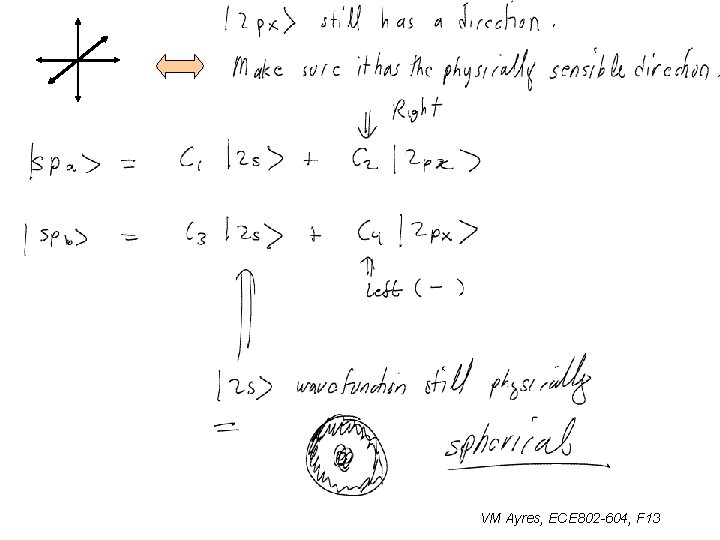 |2px> still has a direction.
Make sure it has the physically sensible direction.
⇓ Right
|spa> = C1 |2s> + C2 |2px>
|spb> = C3 |2s> + C4 |2px>
⇑ Left (-)
|2s> wavefunction still physically
spherical
VM Ayres, ECE802-604, F13